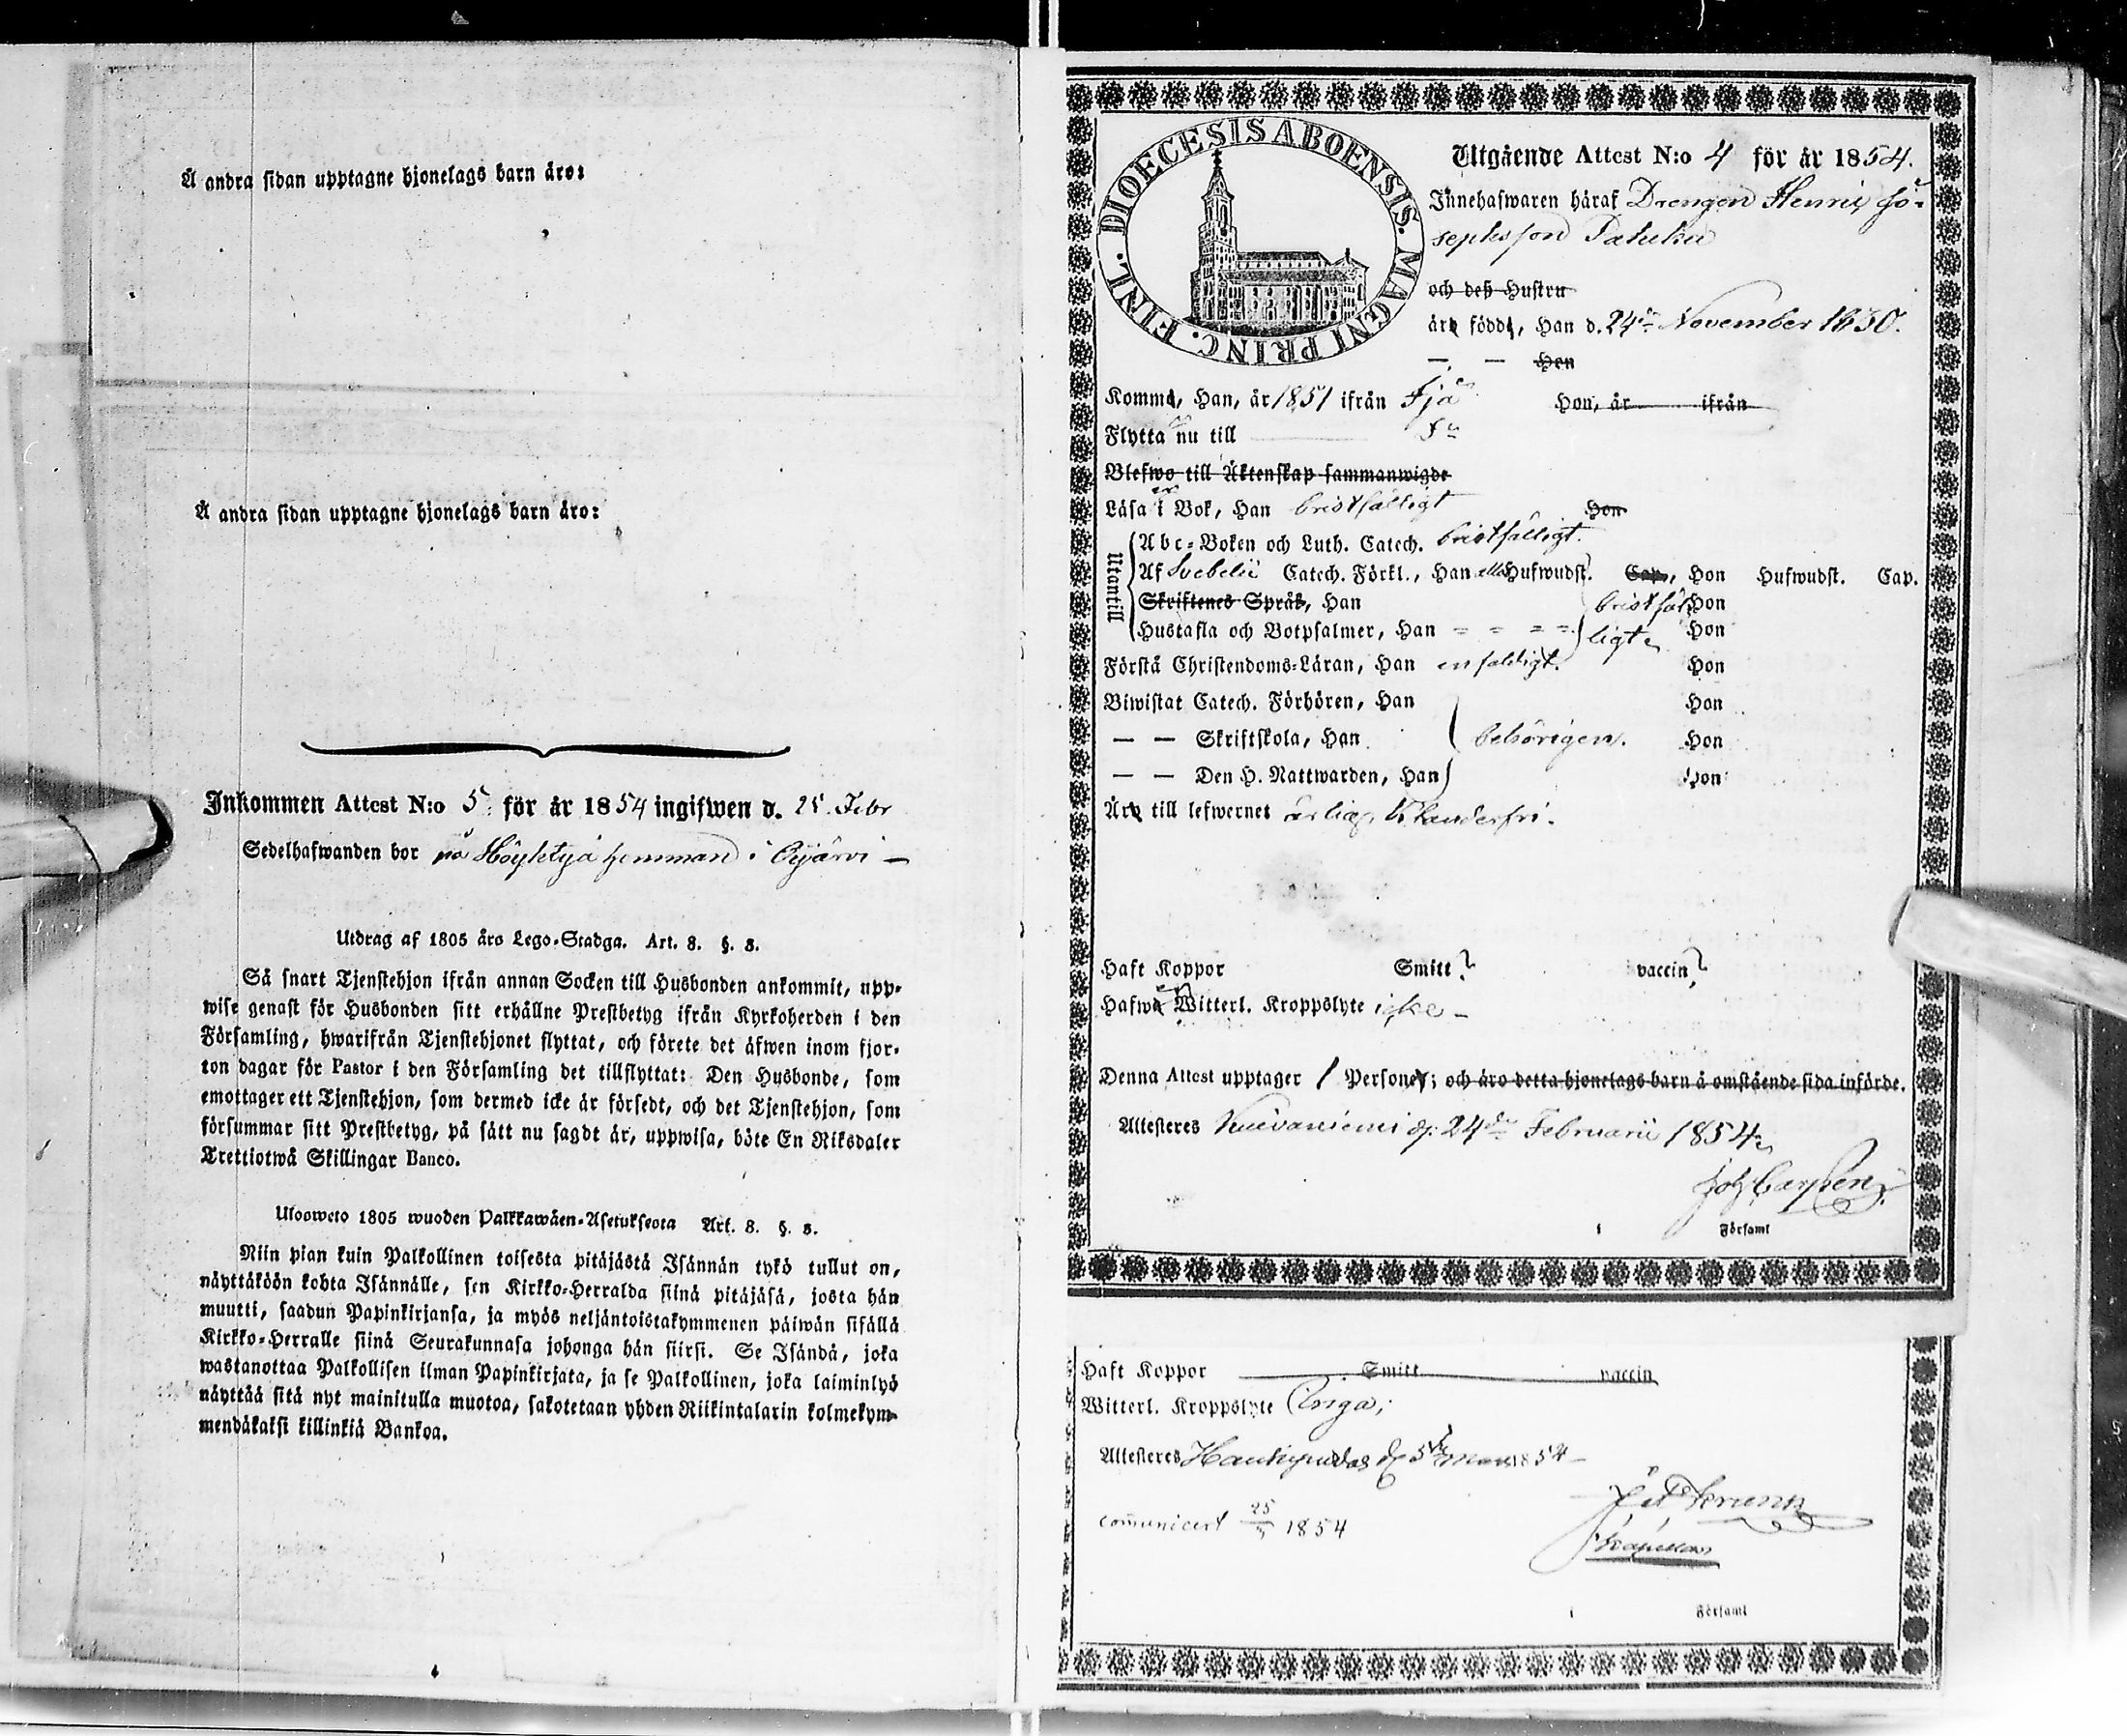 Å andra sidan upptagne hjonelags barn äro:
Å andra sidan upptagne hjonelags barn äro:
Inkommen Attest N:o 5. för år 1854 ingifwen d. 25. Febr
Sedelhafwanden bor på hemman i
Utdrag af 1805 års Lego-Stadga. Art. 8. §. 8.
Så snart Tjenstehjon ifrån annan Socken till Husbonden ankommit, upp-
wise genast för Husbonden sitt erhållne Prestbetyg ifrån Kyrkoherden i den
Församling, hwarifrån Tjenstehjonet flyttat, och förete det äfwen inom fjor-
ton dagar för Pastor i den Församling det tillflyttat: Den Husbonde, som
emottager ett Tjenstehjon, som dermed icke är försedt, och det Tjenstehjon, som
försummar sitt Prestbetyg, på sätt nu sagdt är, uppwisa, böte En Riksdaler
Trettiotwå Skillingar Banco.
Ulosweto 1805 wuoden Palkkawäen-Asetuksesta Art. 8. §. 8.
Niin pian kuin Palkollinen toisesta pitäjästä Isännän tykö tullut on,
näyttäköön kohta Isännälle, sen Kirkko-Herralda siinä pitäjäsä, josta hän
muutti, saadun Papinkirjansa, ja myös neljäntoistakymmenen päiwän sisällä
Kirkko-Herralle siinä Seurakunnasa johonga hän siirsi. Se Isändä, joka
wastanottaa Palkollisen ilman Papinkirjata, ja se Palkollinen, joka laiminlyö
näyttää sitä nyt mainitulla muotoa, sakotetaan yhden Riikintalarin kolmekym-
mendäkaksi killinkiä Bankoa.
DIOECESIS ABOENSIS. MAGNI PRINC. FINL.
Utgående Attest N:o 4 för år 1854.
Innehafwaren häraf Drengen Henric Jo-
sephsson
och deß Hustru
äro född, Han d. 24de November 1830.
— — Hon
Komma, Han, år 1851 ifrån Ijå Hon, år ifrån
Flytta nu till
Blefwo till Äktenskap sammanwigde
Läsa i Bok, Han bristfälligt Hon
Utantill
Abc-Boken och Luth. Catech. bristfälligt.
Af Svebelii Catech. Förkl., Han alla Hufwudst. Cap., Hon Hufwudst. Cap.
Skriftenes Språk, Han bristfäl- Hon
Hustafla och Botpsalmer, Han = = = = ligt Hon
Förstå Christendoms-Läran, Han enfaldigt. Hon
Biwistat Catech. Förhören, Han Hon
— — Skriftskola, Han behörigen. Hon
— — Den H. Nattwarden, Han Hon
Äro till lefwernet ärlig, klanderfri.
Haft Koppor Smitt? vaccin?
Hafwa Witterl. Kroppslyte icke —
Denna Attest upptager 1 Personer; och äro detta hjonelags barn å omstående sida införde.
Attesteres Kuivaniemi d. 24de Februarii 1854.
Joh Carlsen
Församl
Haft Koppor Smitt vaccin
Witterl. Kroppslyte Inga;
Attesteres Haukipudas d 5te Mars 1854
communicert 25/3 1854
Kapellan
Församl